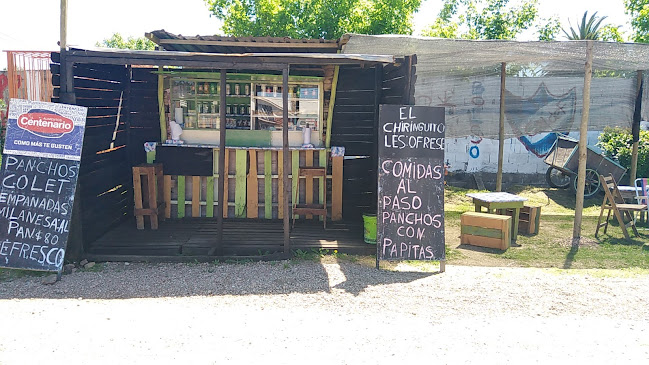 Centenario
COMO MÁS TE GUSTEN
PANCHOS
GOLET
EMPANADAS
MILANESA AL
PAN $80
REFRESCO
EL
CHIRINGUITO
LES OFRESE
COMIDAS
AL
PASO
PANCHOS
CON
PAPITAS